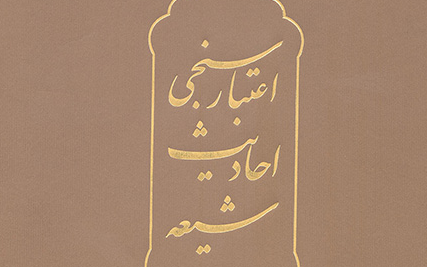 اعتبارسنجی
احادیث
شیعه